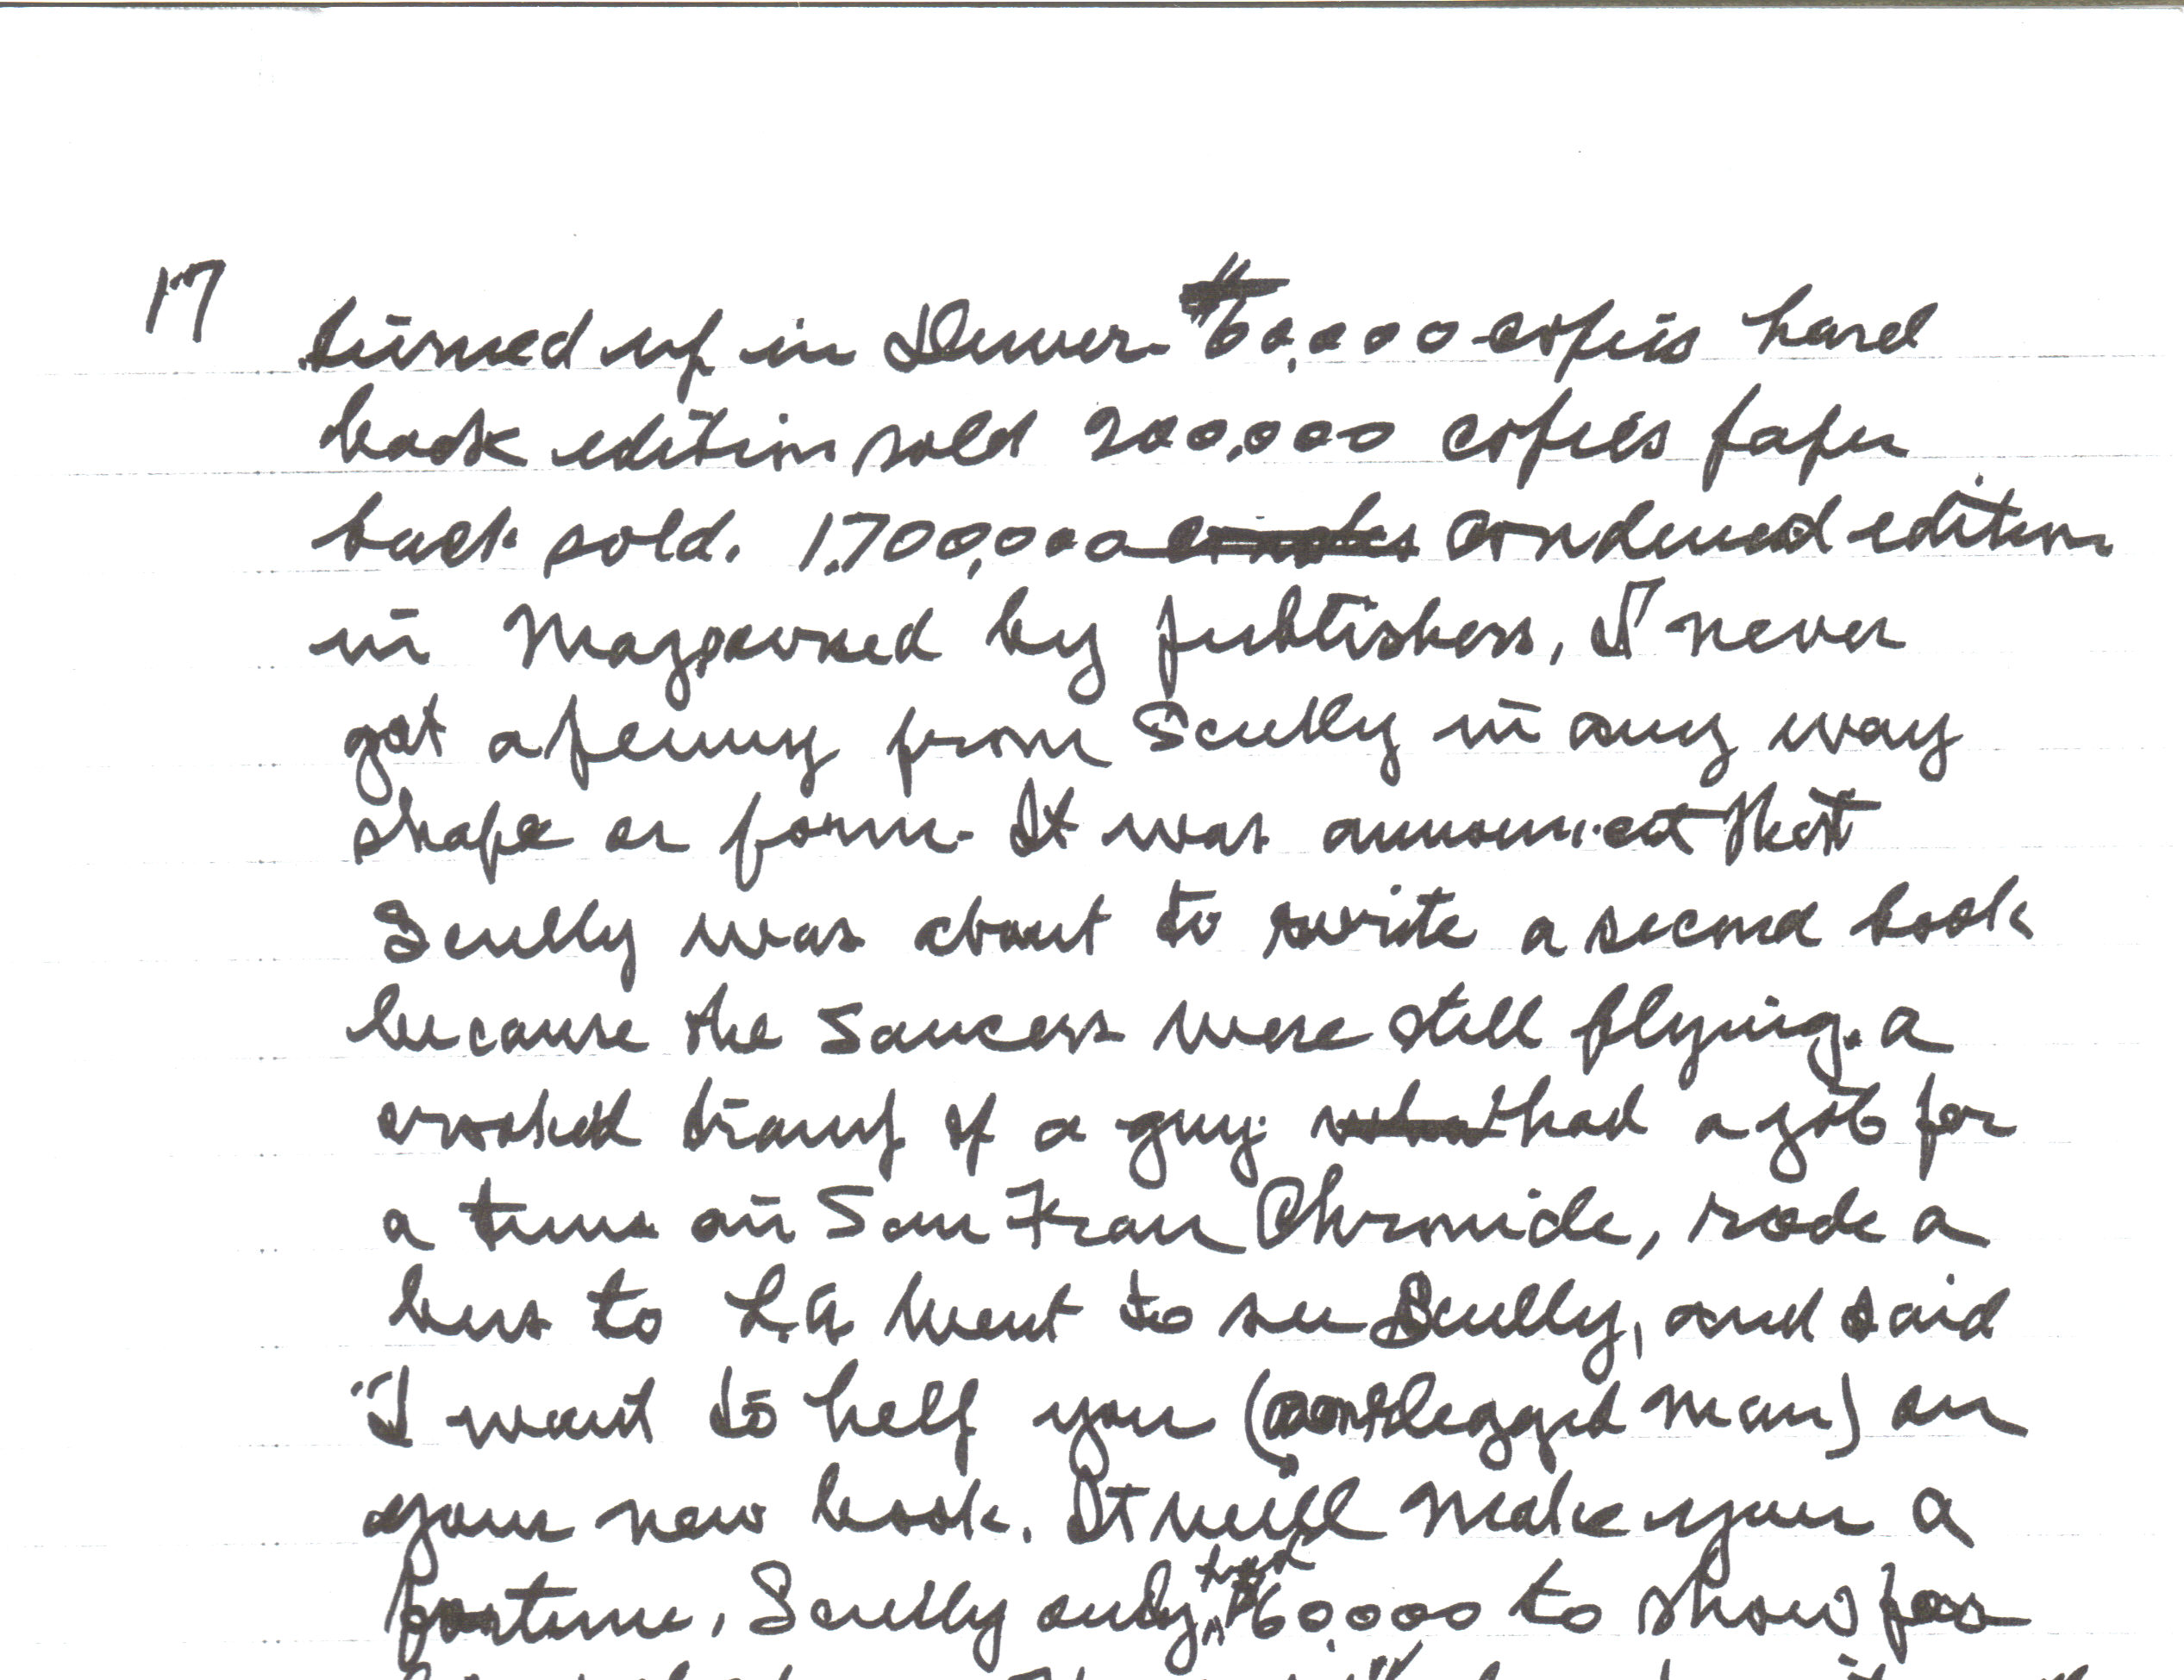 17
turned up in Denver. 60,000 copies hard
back edition sold 200,000 copies paper
back sold. 1,700,000 condensed edition
in Mag owned by publishers, I never
got a penny from Scully in any way
shape or form. It was announced that
Scully was about to write a second book
because the Saucers were still flying. a
crooked tramp of a guy had a job for
a time on San Fran Chronicle, rode a
bus to L.A went to see Scully, and said
"I want to help you (one legged man) on
your new book. It will make you a
fortune. Scully only had $60,000 to show for